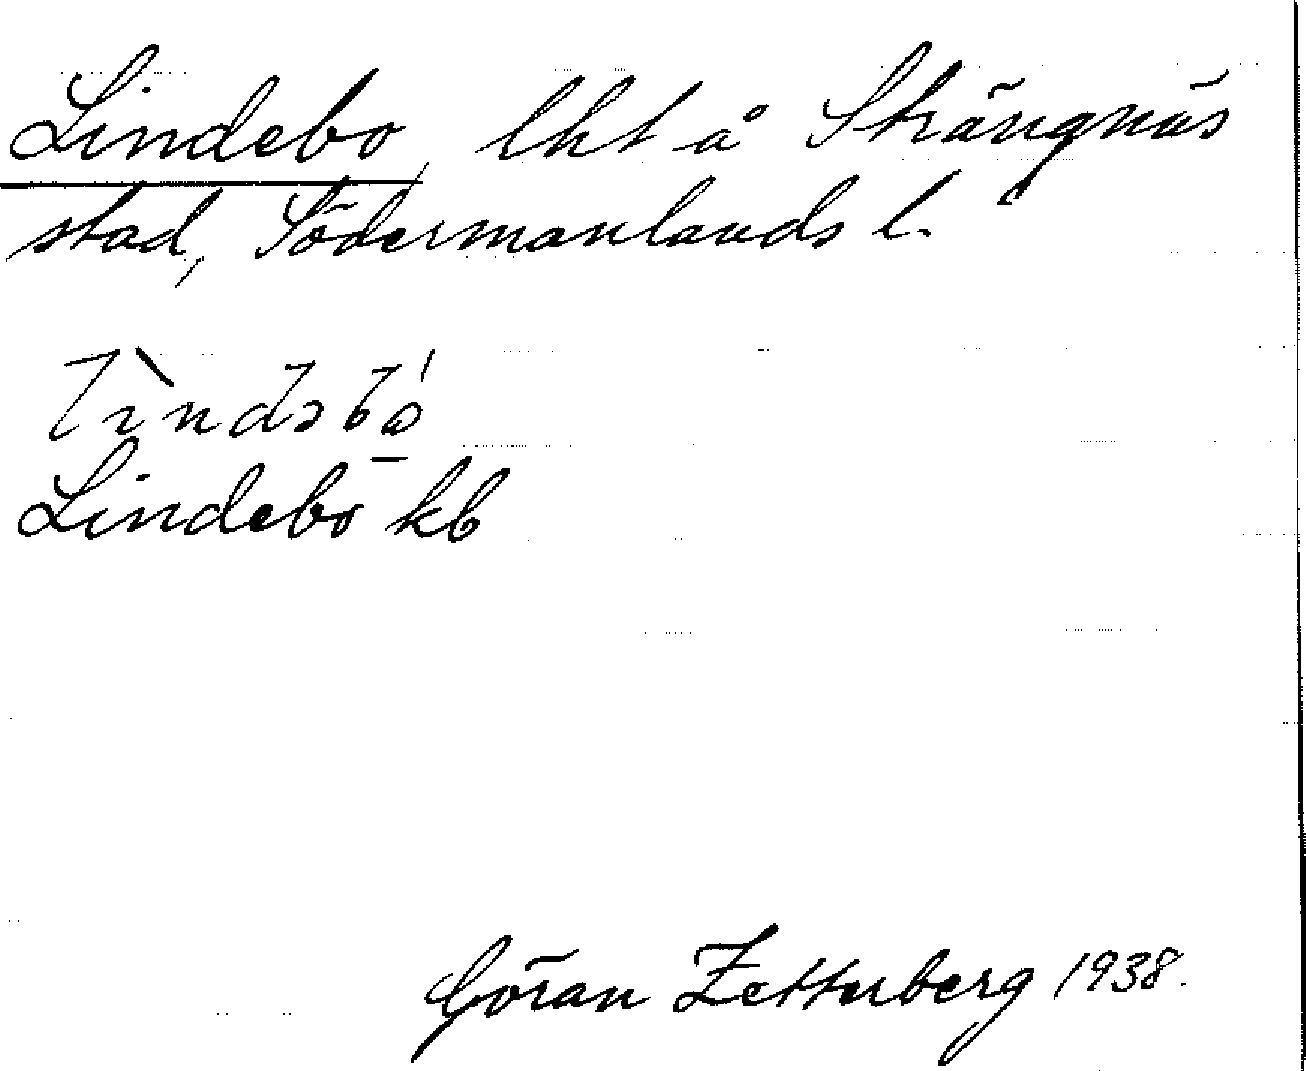 Lindebo, lht å Strängnäs
stad, Södermanlands l.
Lindebo kb
Göran Zetterberg 1938.